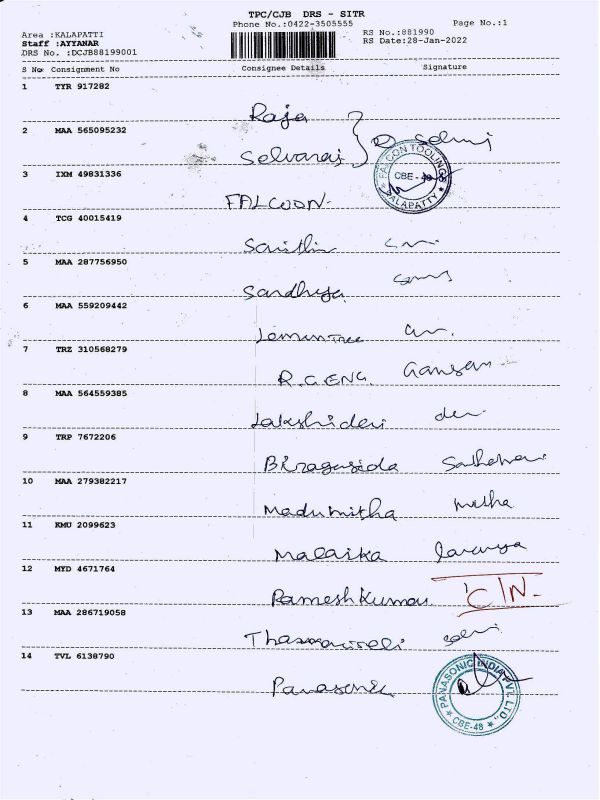 TPC/CJB DRS - SITR
Phone No.:0422-3505555 Page No.:1
Area :KALAPATTI RS No.:881990
Staff :AYYANAR RS Date:28-Jan-2022
DRS No. :DCJB88199001
S No Consignment No Consignee Details Signature
1 TYR 917282
Raja
2 MAA 565095232
Selvaraj Selvi
3 IXM 49831336
FALCON TOOLINGS CBE-48 KALAPATTY
FALCOON
4 TCG 40015419
5 MAA 287756950
Sandhya
6 MAA 559209442
Lemontree
7 TRZ 310568279
R.G.ENG. Gansan
8 MAA 564559385
Lakshideri
9 TRP 7672206
10 MAA 279382217
Madumitha
11 KMU 2099623
Malaika lavanya
12 MYD 4671764
RameshKumar C/N.
13 MAA 286719058
14 TVL 6138790
Panasonic
PANASONIC INDIA PVT. LTD., CBE-48